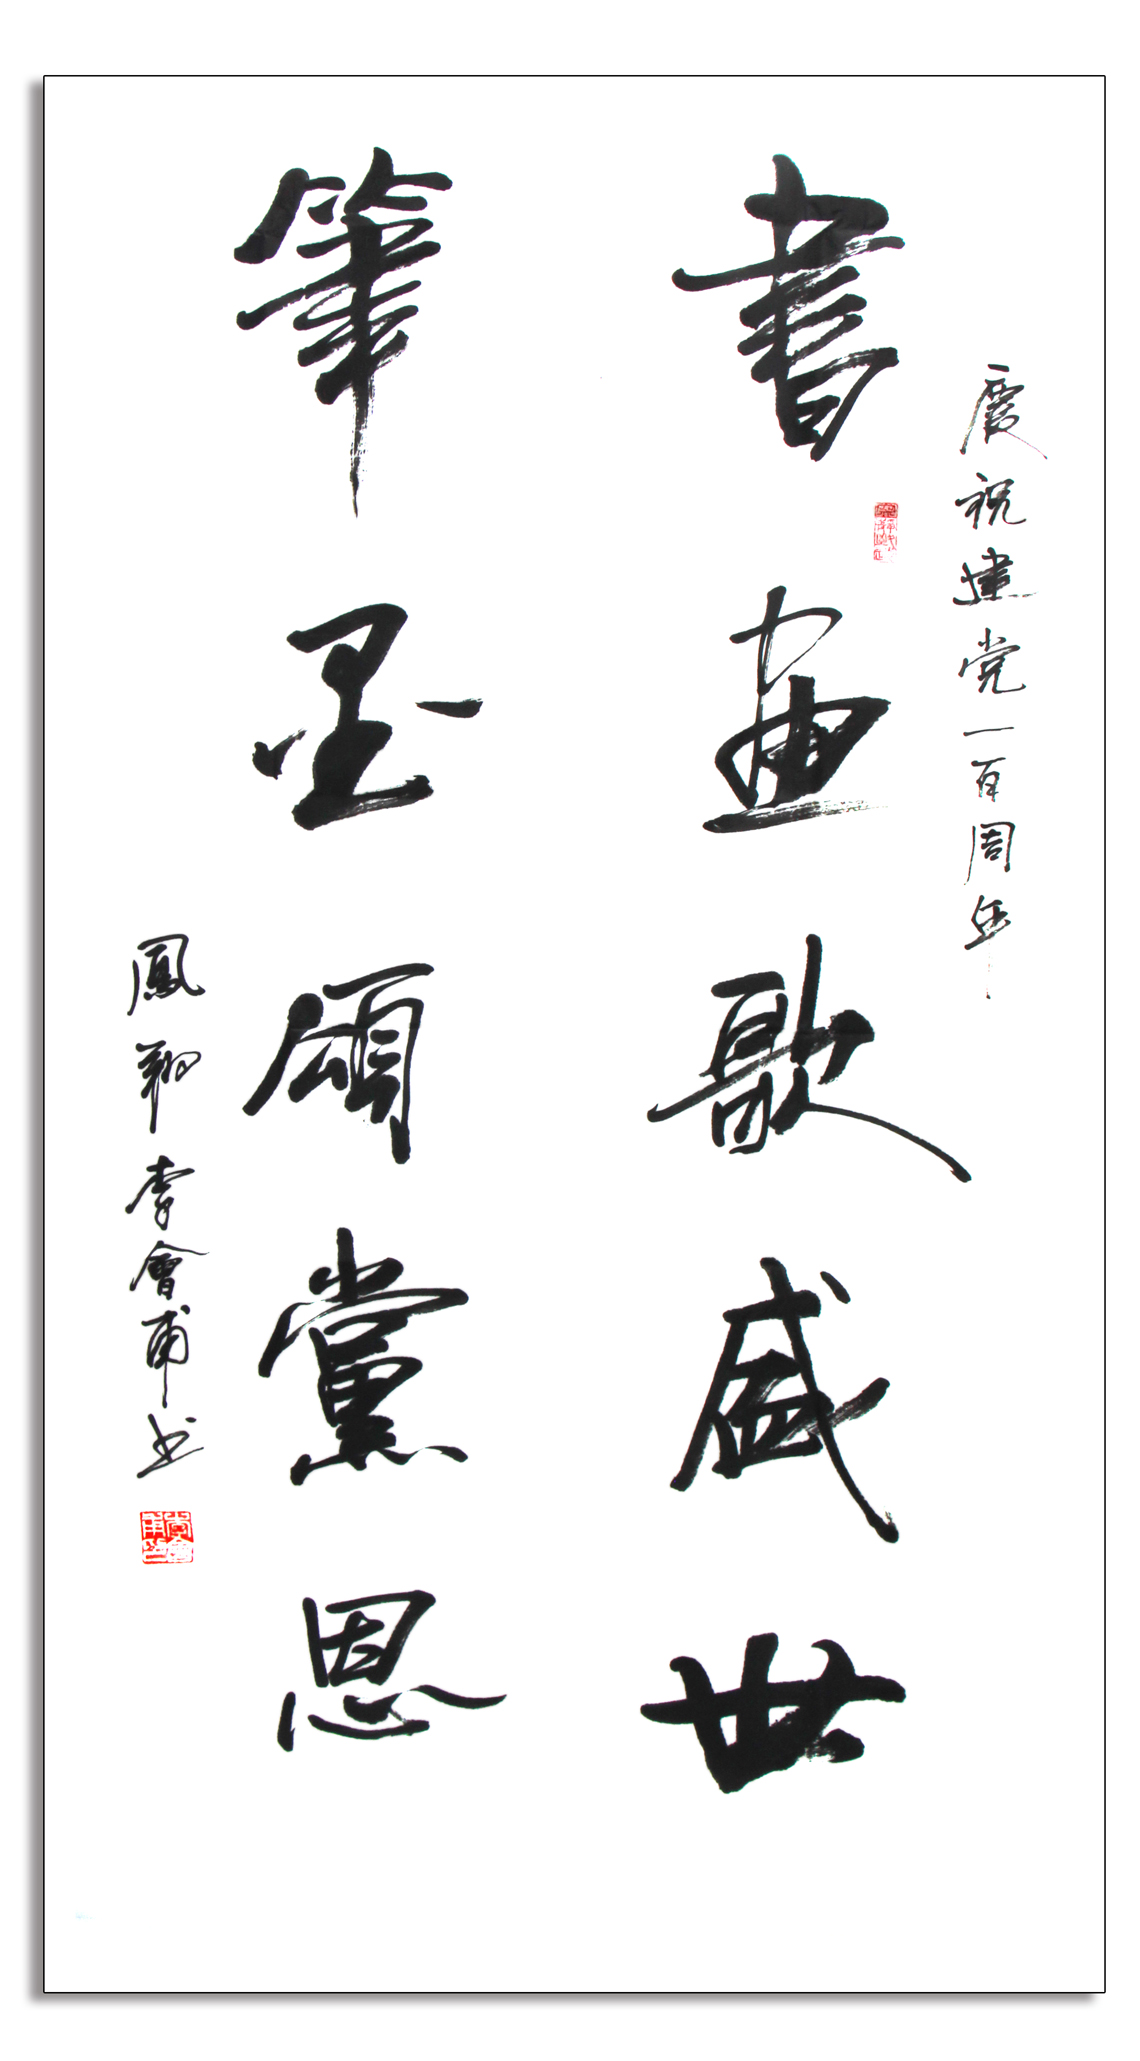 慶祝建党一百周年
書画歌盛世
筆墨頌黨恩
鳳翔李會甫书